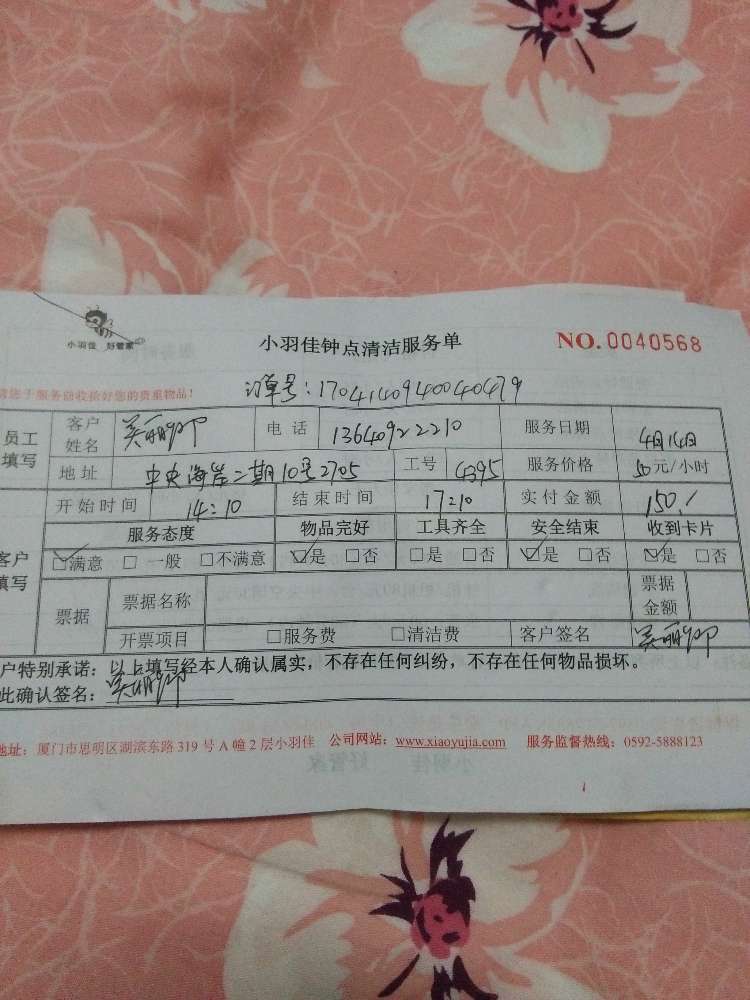 小羽佳 好管家
小羽佳钟点清洁服务单
NO. 0040568
请您于服务前收捡好您的贵重物品!
订单号:1704140940040479
员工填写 客户姓名 电话 13640922210 服务日期 4月14日
地址 中央海岸二期10号2705 工号 4395 服务价格 50元/小时
客户填写 开始时间 14:10 结束时间 17:10 实付金额 150
服务态度 物品完好 工具齐全 安全结束 收到卡片
☑满意 □一般 □不满意 ☑是 □否 □是 □否 ☑是 □否 ☑是 □否
票据 票据名称 票据金额
开票项目 □服务费 □清洁费 客户签名
户特别承诺:以上填写经本人确认属实,不存在任何纠纷,不存在任何物品损坏。
此确认签名:
地址:厦门市思明区湖滨东路 319 号 A 幢 2 层小羽佳 公司网站:www.xiaoyujia.com 服务监督热线:0592-5888123